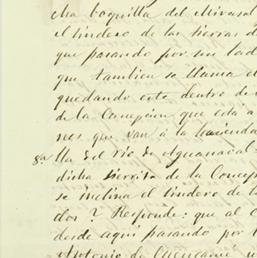 cha boquilla del Mirasol
el lindero de las tierras d
que pasando por un lad
que tambien se llama el
quedando este dentro de
de la Concepcion que está a
nes que van á la hacienda
8a lla del rio de Aguanaval
dicha sierrita de la Concep
se inclina el lindero de la
dor? Responde: que al C
desde aqui pasando por
Antonio de Cuencamé